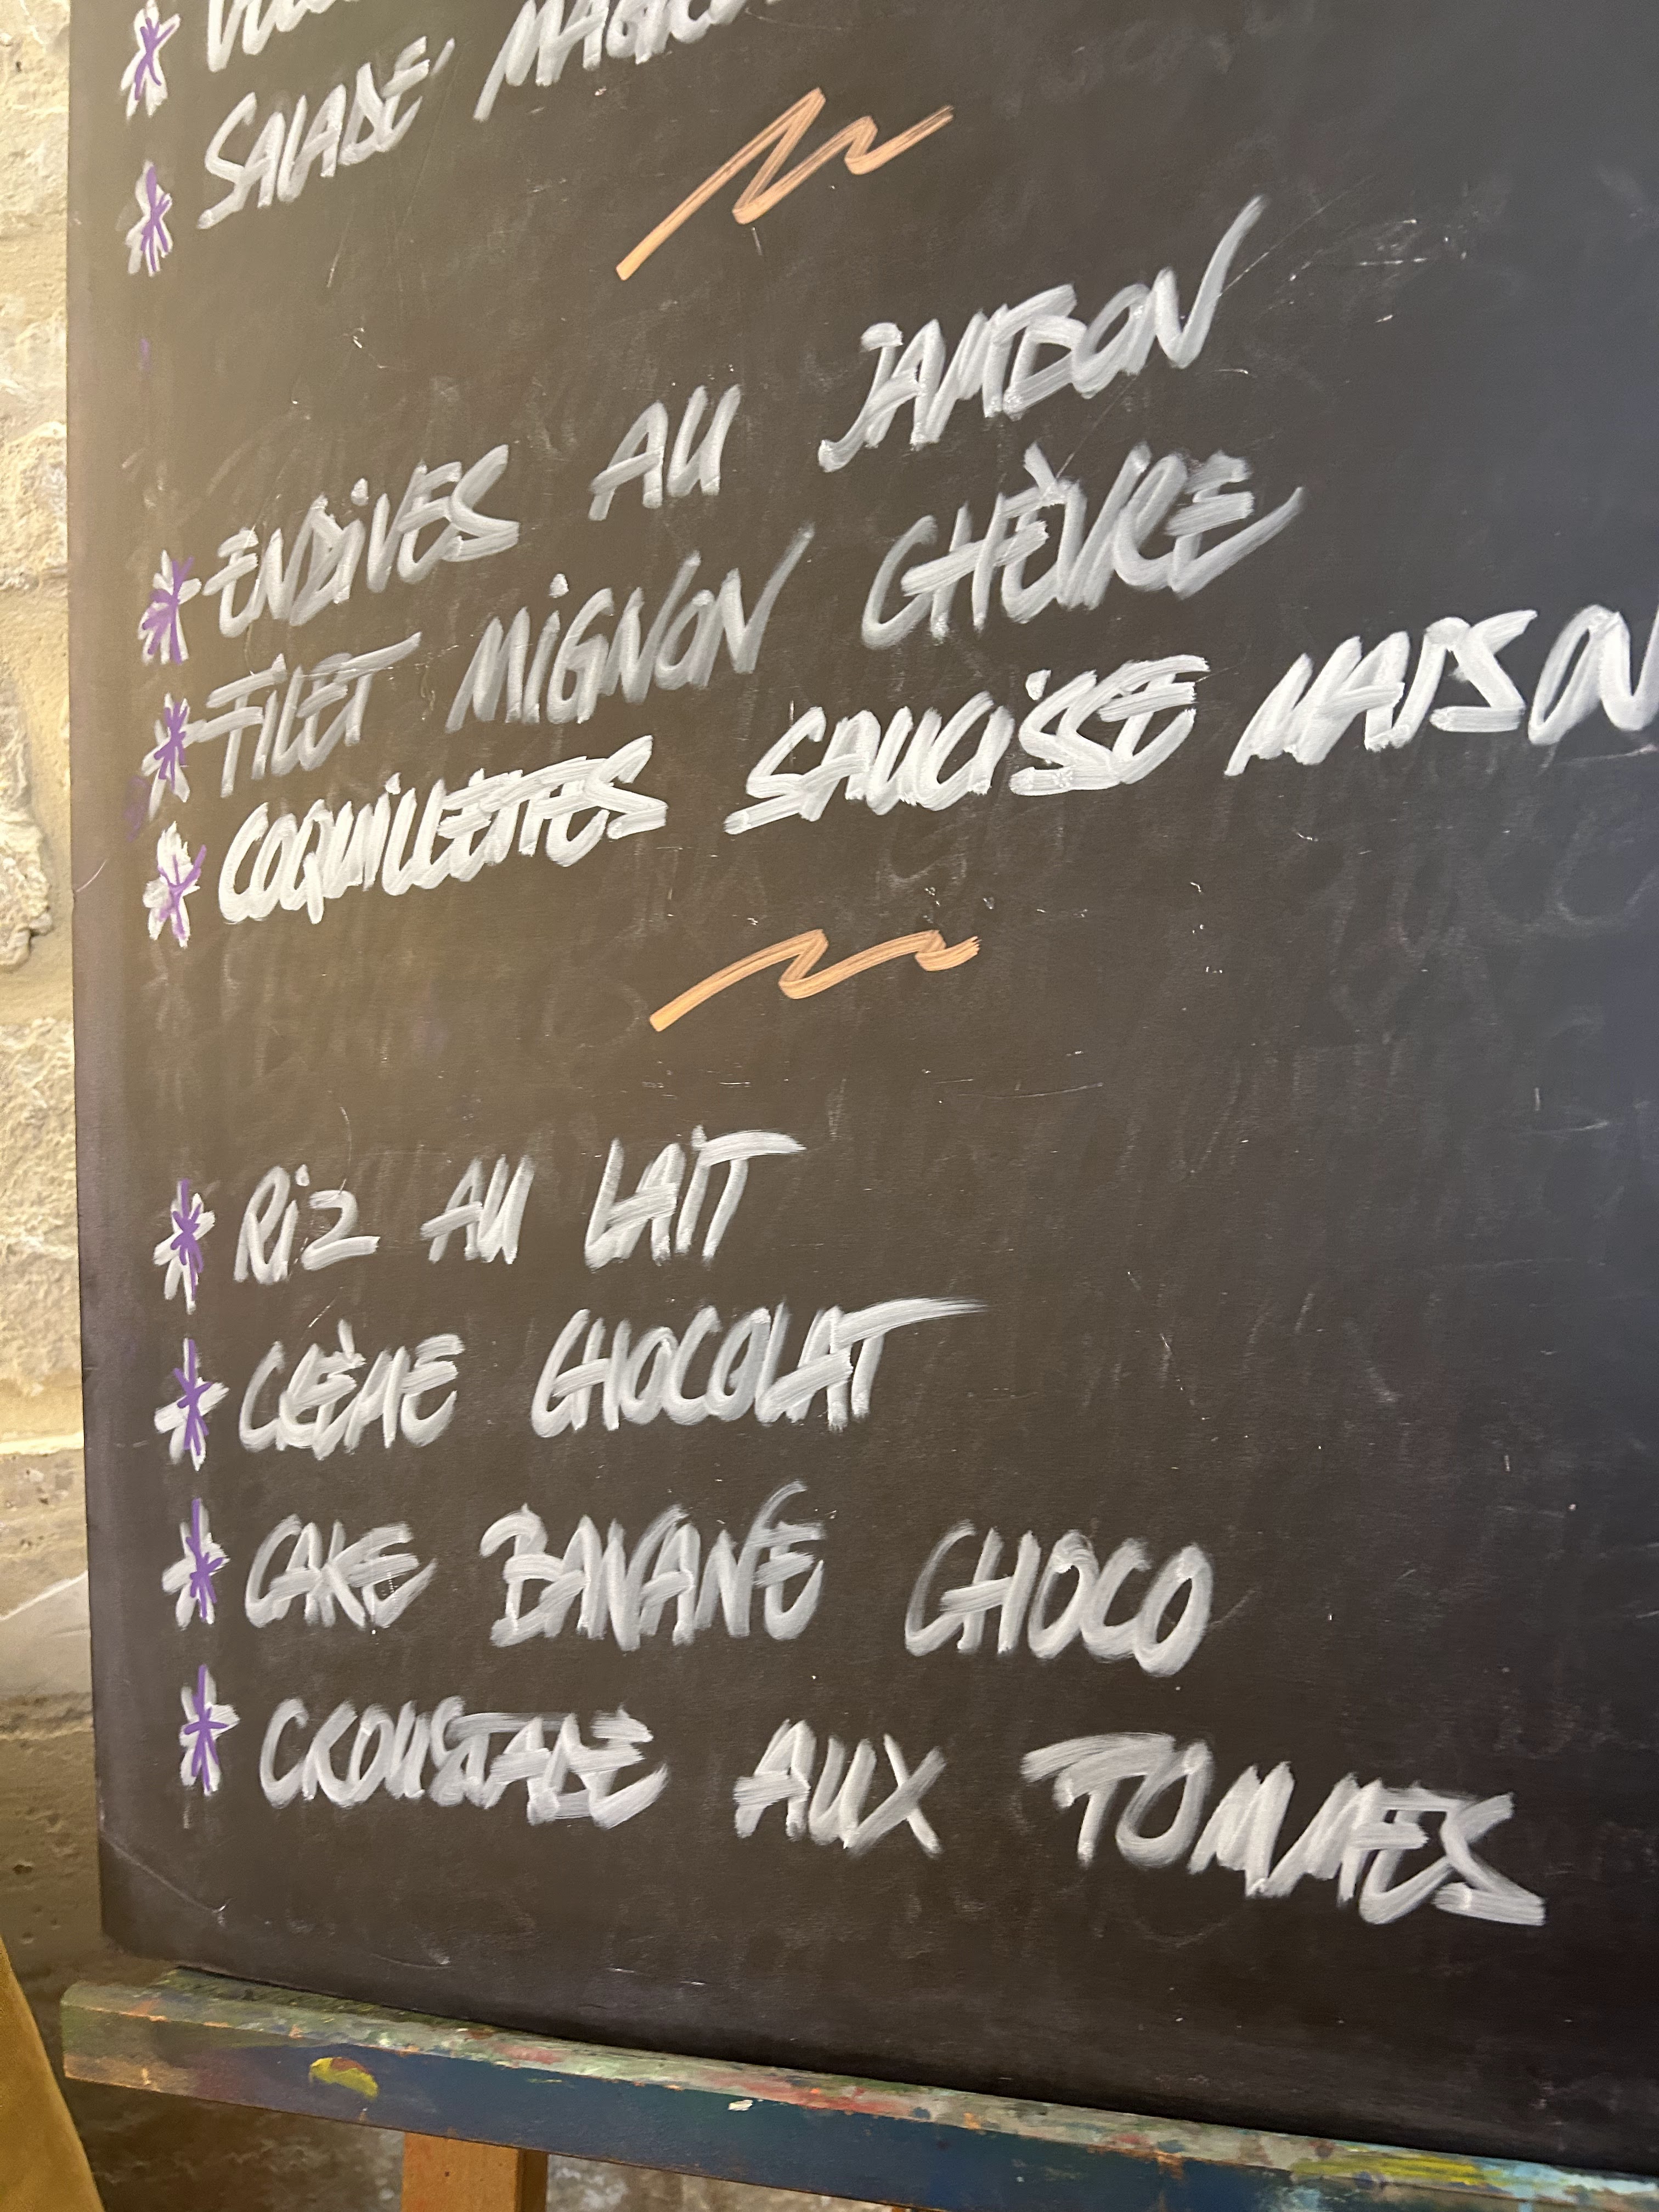 SALADE
ENDIVES AU JAMBON
FILET MIGNON CHÈVRE
COQUILLETTES SAUCISSE MAISON
RIZ AU LAIT
CRÈME CHOCOLAT
CAKE BANANE CHOCO
CROUSTADE AUX TOMMES